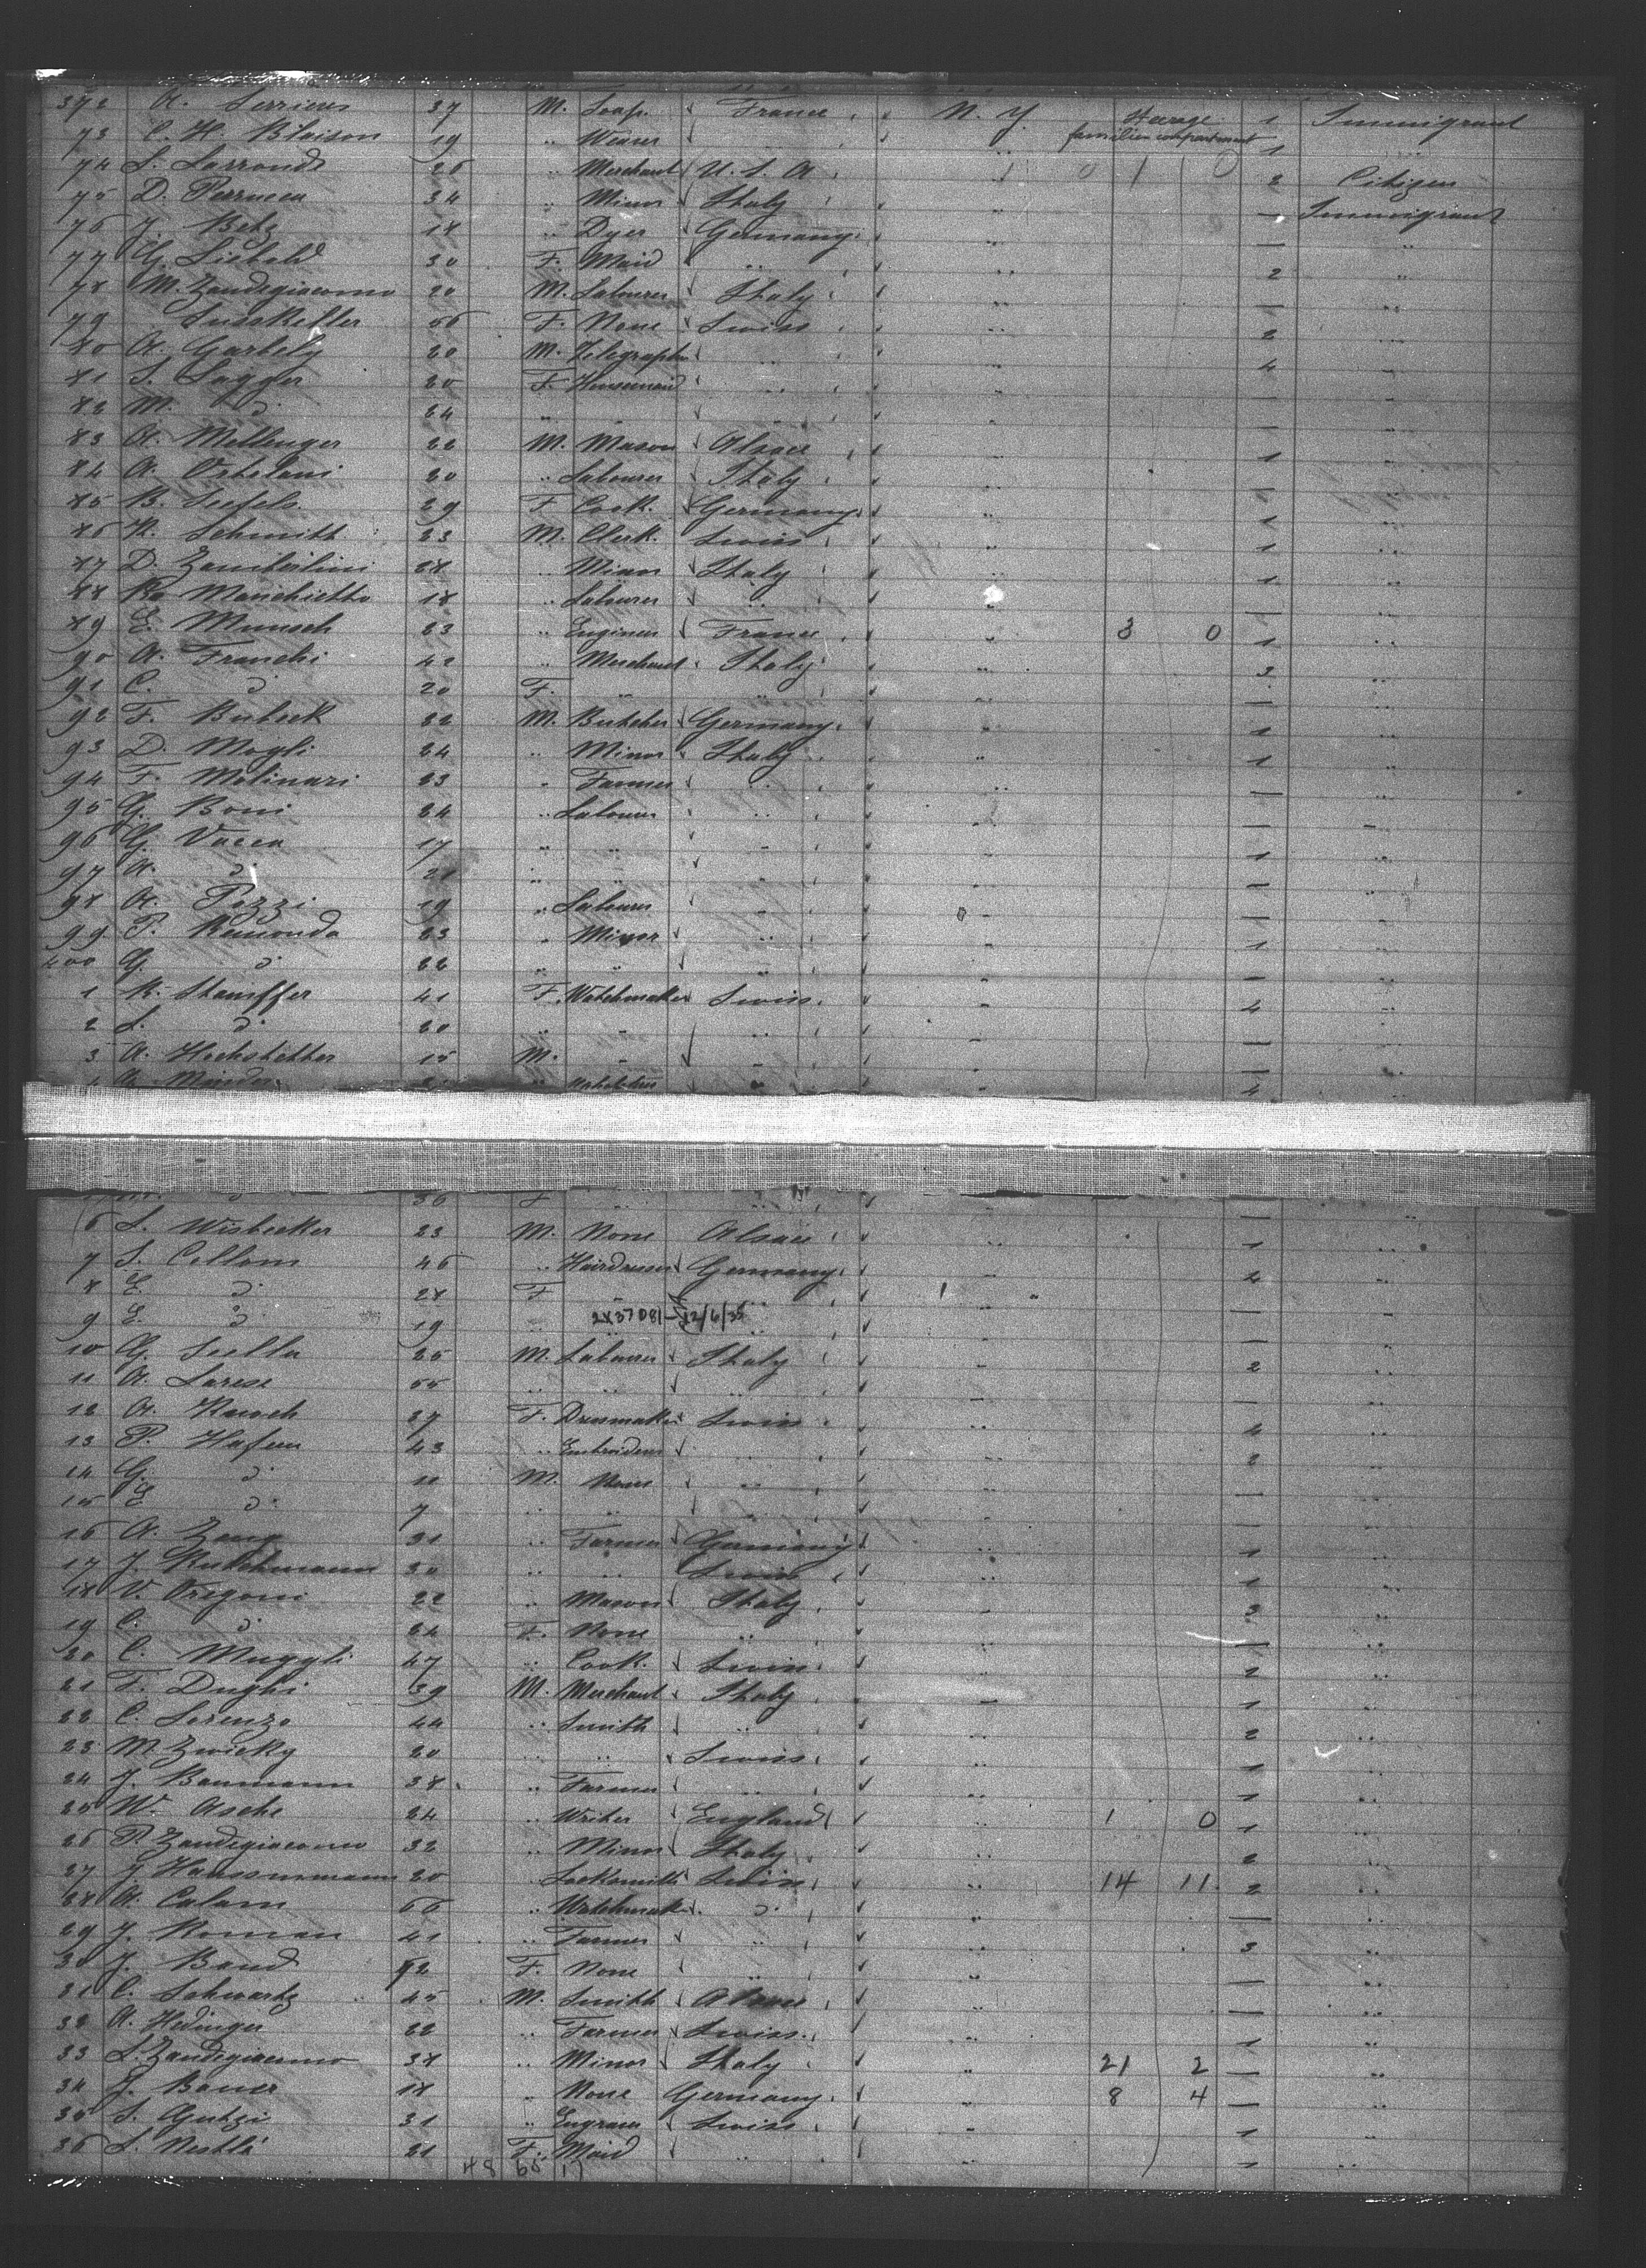 372 A. Serrieres 37 M. Soap. France N. Y. Steerage 1 Immigrant
73 C. H. Blaison 19 " Weaver " " families compartment 1 "
74 S. Larronde 26 " Merchant U. S. A. " 2 Citizen
75 D. Perruca 34 " Miner Italy " — Immigrant
76 J. Betz 18 " Dyer Germany " — "
77 G. Liebeld 30 F. Maid " " 2 "
78 M. Zandegiacomo 20 M. Labourer Italy " — "
79 Suisketter 56 F. None Swiss " 2 "
80 A. Garbely 20 M. Telegraph " " 4 "
81 S. Sagger 20 F. Housemaid " " — "
82 M. do 24 " " " — "
83 A. Mellenger 22 M. Mason Alsace " 1 "
84 A. Ortelani 20 " Labourer Italy " — "
85 B. Seefels 29 F. Cook. Germany " 1 "
86 K. Schmitt 23 M. Clerk. Swiss " 1 "
87 D. Zamberlini 28 " Miner Italy " 1 "
88 Manchietto 18 " Labourer " " — "
89 E. Munsch 23 " Engineer France " 3 0 1 "
90 A. Franchi 42 " Merchant Italy " 3 "
91 C. do 20 F. " " " — "
92 F. Bubeck 22 M. Butcher Germany " 1 "
93 D. Mogli 24 " Miner Italy " 1 "
94 F. Molinari 23 " Farmer " " — "
95 G. Boni 24 " Labourer " " — "
96 G. Vacca 17 " " " " 1 "
97 A. do 21 " " " " — "
98 A. Pozzi 19 " Labourer " " — "
99 P. Remonda 23 " Miner " " 1 "
400 G. do 22 " " " " — "
1 R. Stauffer 41 F. Watchmaker Swiss " 4 "
2 L. do 20 " " " " — "
3 A. Hochstetter 15 M. " " " — "
Minder " " 4
do 36 F " " — "
6 L. Wisbecker 23 M. None Alsace " 1 "
7 S. Collom 46 " Hairdresser Germany " 4 "
8 E. do 28 F " " " — "
9 E. do 19 " 2X37081-12/6/35 " — "
10 G. Scella 25 M. Labourer Italy " 2 "
11 A. Larese 55 " " " " — "
12 A. Kusch 27 F. Dressmaker Swiss " 4 "
13 P. Hafen 43 " Embroiderer " " 2 "
14 G. do 11 M. None " " — "
15 E do 7 " " " " — "
16 A. Zang 31 " Farmer Germany " 1 "
17 J. Rutchmann 30 " " Swiss " 1 "
18 V. Oregoni 22 " Mason Italy " 3 "
19 C. do 24 F. None " " — "
20 C. Muggli 47 " Cook. Swiss " 2 "
21 F. Dughi 39 M. Merchant Italy " 1 "
22 C. Lorenzo 44 " Smith " " 2 "
23 M. Zwicky 20 " " Swiss " 1 "
24 J. Baumann 38 " Farmer " " 1 "
25 W. Asche 24 " Writer England " 1 0 1 "
26 P. Zandegiacomo 32 " Miner Italy " 2 "
27 J. Haussmmann 20 Locksmith Swiss " 14 11 2 "
28 A. Calam 66 " Watchmak. do " — "
29 J. Roman 41 " Farmer " " 3 "
30 J. Baud 72 F. None " " — "
31 C. Schwartz 45 M. Smith Alsace " — "
32 A. Hedinger 22 " Farmer Swiss. " 1 "
33 L. Zandegiacomo 38 " Miner Italy " 21 2 — "
34 J. Bauer 18 " None Germany " 8 4 — "
35 S. Gutzi 31 " Engraver Swiss " 1 "
36 L. Nestlé 21 F. Maid " " 1 "
48 65 11